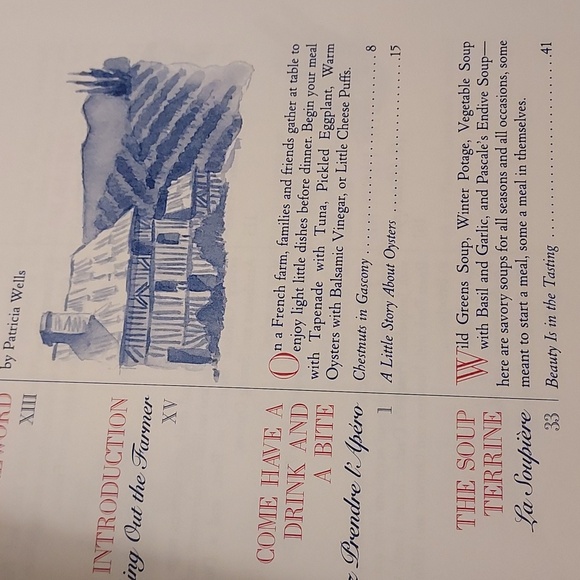 by Patricia Wells
XIII
INTRODUCTION
Out the Farmer
XV
COME HAVE A
DRINK AND
A BITE
Prendre l'Apéro
1
On a French farm, families and friends gather at table to
enjoy light little dishes before dinner. Begin your meal
with Tapenade with Tuna, Pickled Eggplant, Warm
Oysters with Balsamic Vinegar, or Little Cheese Puffs.
Chestnuts in Gascony . . . . . . . . . . . . . . . . . . . . . . . . 8
A Little Story About Oysters . . . . . . . . . . . . . . . . . . . 15
THE SOUP
TERRINE
La Soupière
33
Wild Greens Soup, Winter Potage, Vegetable Soup
with Basil and Garlic, and Pascale's Endive Soup—
here are savory soups for all seasons and all occasions, some
meant to start a meal, some a meal in themselves.
Beauty Is in the Tasting . . . . . . . . . . . . . . . . . . . . . . 41